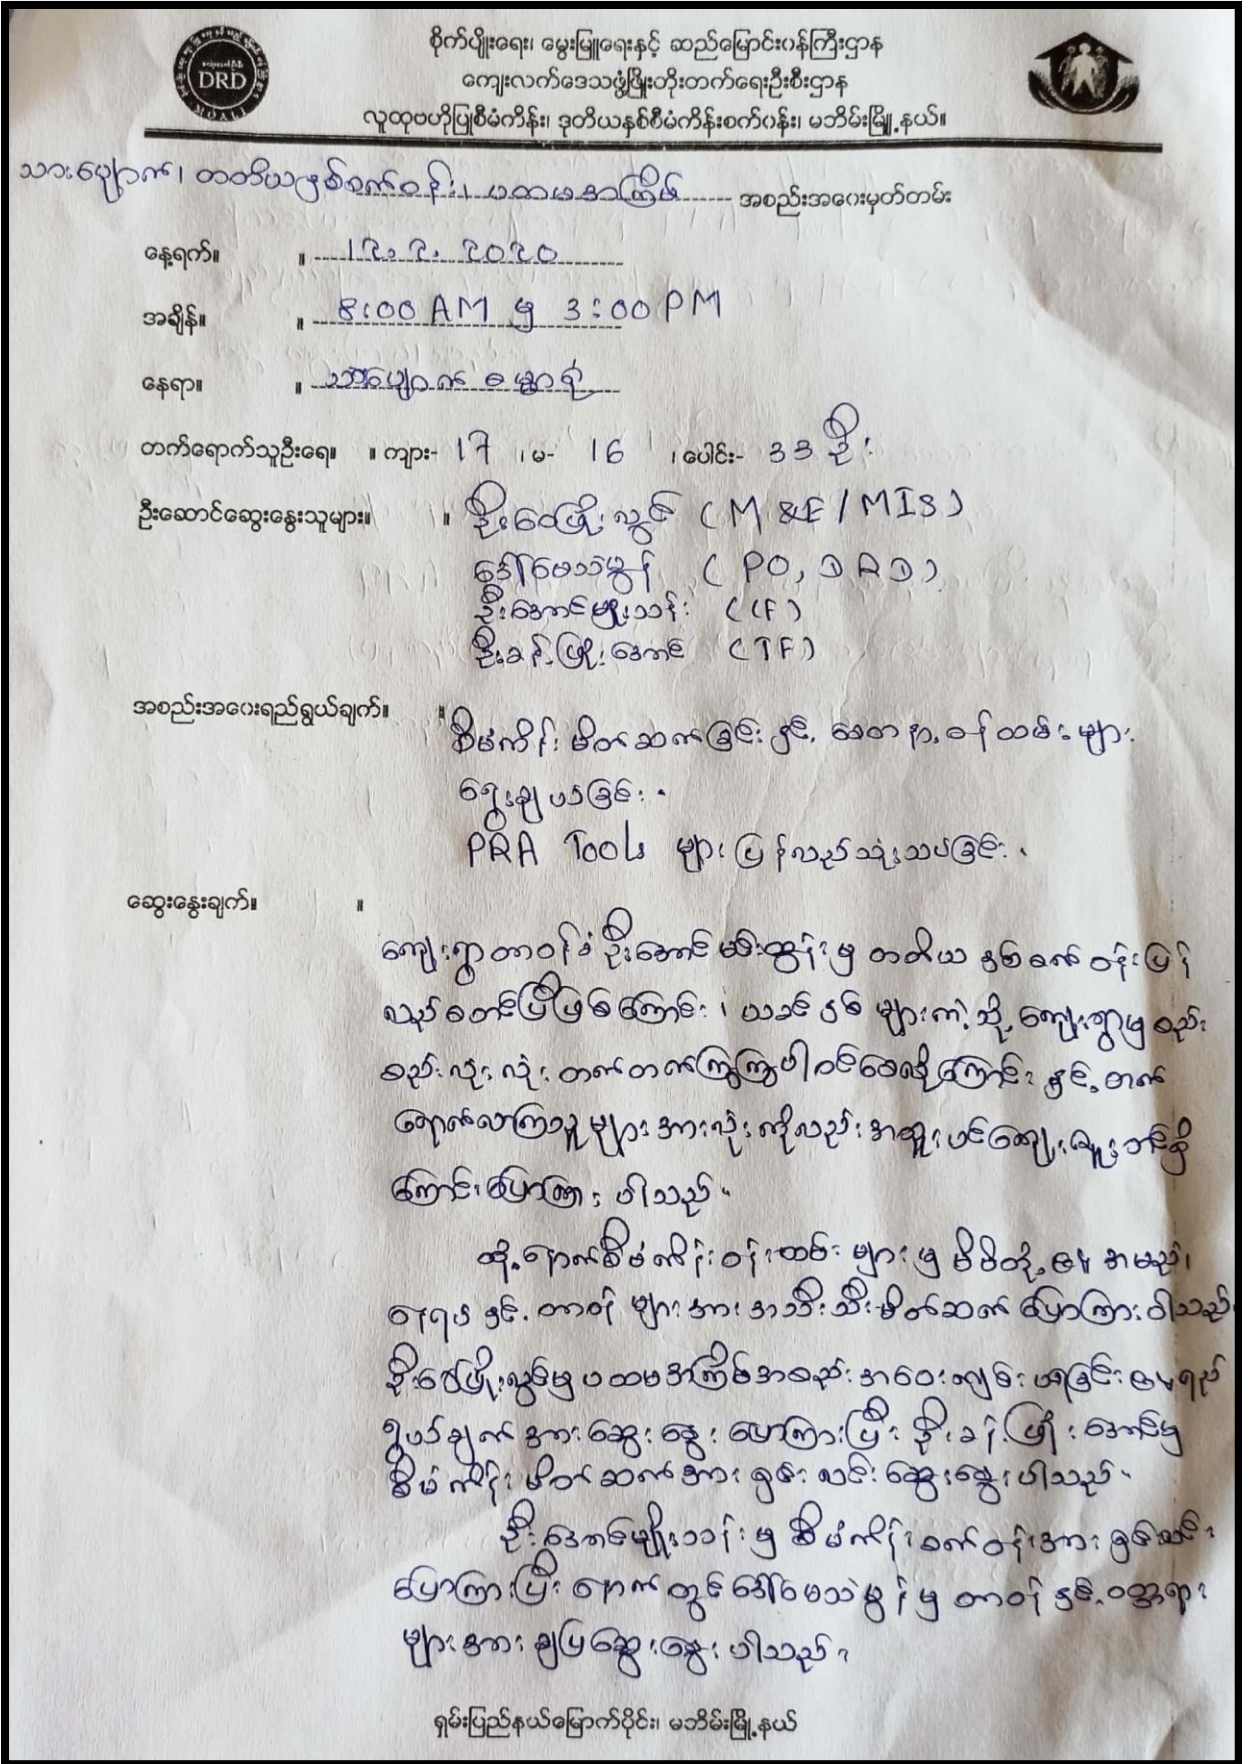 စိုက်ပျိုးရေး၊ မွေးမြူရေးနှင့် ဆည်မြောင်းဝန်ကြီးဌာန
DRD
ကျေးလက်ဒေသဖွံ့ဖြိုးတိုးတက်ရေးဦးစီးဌာန
လူထုဗဟိုပြုစီမံကိန်း၊ ဒုတိယနှစ်စီမံကိန်းစက်ဝန်း၊ မဘိမ်းမြို့နယ်။
သားပျောက်၊ တတိယနှစ်စက်ဝန်း၊ ပထမအကြိမ် အစည်းအဝေးမှတ်တမ်း
နေ့ရက်။ ။ 12.2.2020
အချိန်။ ။ 8:00 AM မှ 3:00 PM
နေရာ။ ။ သားပျောက် ဓမ္မာရုံ
တက်ရောက်သူဦးရေ။ ။ ကျား- 17 ၊ မ- 16 ၊ ပေါင်း- 33 ဦး
ဦးဆောင်ဆွေးနွေးသူများ။ ။ ဦးဝေဖြိုးလွင် (M&E/MIS)
ဒေါ်မေသဲမွန် (PO, DRD)
ဦးအောင်မျိုးသန်း (CF)
ဦးခန့်ဖြိုးအောင် (TF)
အစည်းအဝေးရည်ရွယ်ချက်။ ။ စီမံကိန်းမိတ်ဆက်ခြင်းနှင့် စေတနာ့ဝန်ထမ်းများ
ရွေးချယ်ခြင်း။
PRA Tools များပြန်လည်သုံးသပ်ခြင်း။
ဆွေးနွေးချက်။ ။
ကျေးရွာတာဝန်ခံဦးအောင်မင်းထွန်းမှ တတိယနှစ်စက်ဝန်းပြန်
လည်စတင်ပြီဖြစ်ကြောင်း၊ ယခင်နှစ်များကဲ့သို့ ကျေးရွာမှစည်း
စည်းလုံးလုံး တက်တက်ကြွကြွပါဝင်စေလိုကြောင်းနှင့် တက်
ရောက်လာကြသူများအားလုံးကိုလည်း အထူးပင်ကျေးဇူးတင်ရှိ
ကြောင်းပြောကြားပါသည်။
ထို့နောက်စီမံကိန်းဝန်ထမ်းများမှ မိမိတို့၏အမည်၊
ရာထူးနှင့် တာဝန်များအား အသီးသီးမိတ်ဆက်ပြောကြားပါသည်
ဦးဝေဖြိုးလွင်မှ ပထမအကြိမ်အစည်းအဝေးကျင်းပခြင်း၏ရည်
ရွယ်ချက်အားဆွေးနွေးပြောကြားပြီး ဦးခန့်ဖြိုးအောင်မှ
စီမံကိန်းမိတ်ဆက်အား ရှင်းလင်းဆွေးနွေးပါသည်။
ဦးအောင်မျိုးသန်းမှ စီမံကိန်းစက်ဝန်းအား ရှင်းလင်း
ပြောကြားပြီးနောက်တွင် ဒေါ်မေသဲမွန်မှ တာဝန်နှင့်ဝတ္တရား
များအား ချပြဆွေးနွေးပါသည်။
ရှမ်းပြည်နယ်မြောက်ပိုင်း၊ မဘိမ်းမြို့နယ်